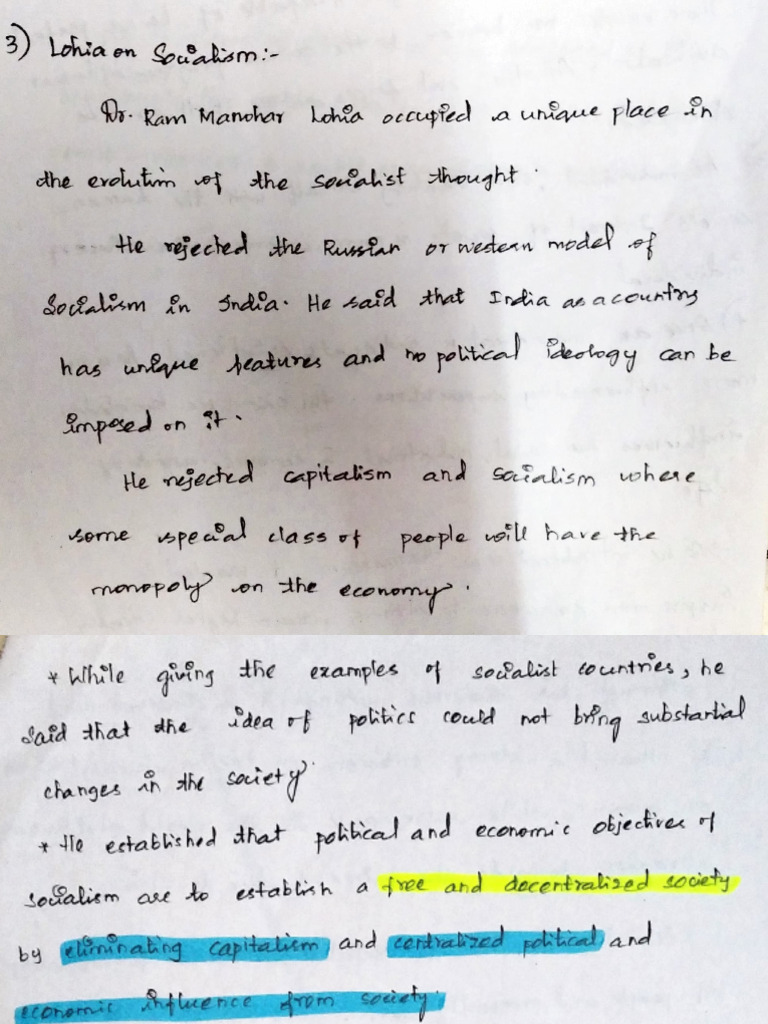 3) Lohia on Socialism:-
Dr. Ram Manohar Lohia occupied a unique place in
the evolution of the socialist thought.
He rejected the Russian or western model of
Socialism in India. He said that India as a country
has unique features and no political ideology can be
imposed on it.
He rejected capitalism and socialism where
some special class of people will have the
monopoly on the economy.
* While giving the examples of socialist countries, he
said that the idea of politics could not bring substantial
changes in the society.
* He established that political and economic objectives of
socialism are to establish a free and decentralized society
by eliminating capitalism and centralized political and
economic influence from society.